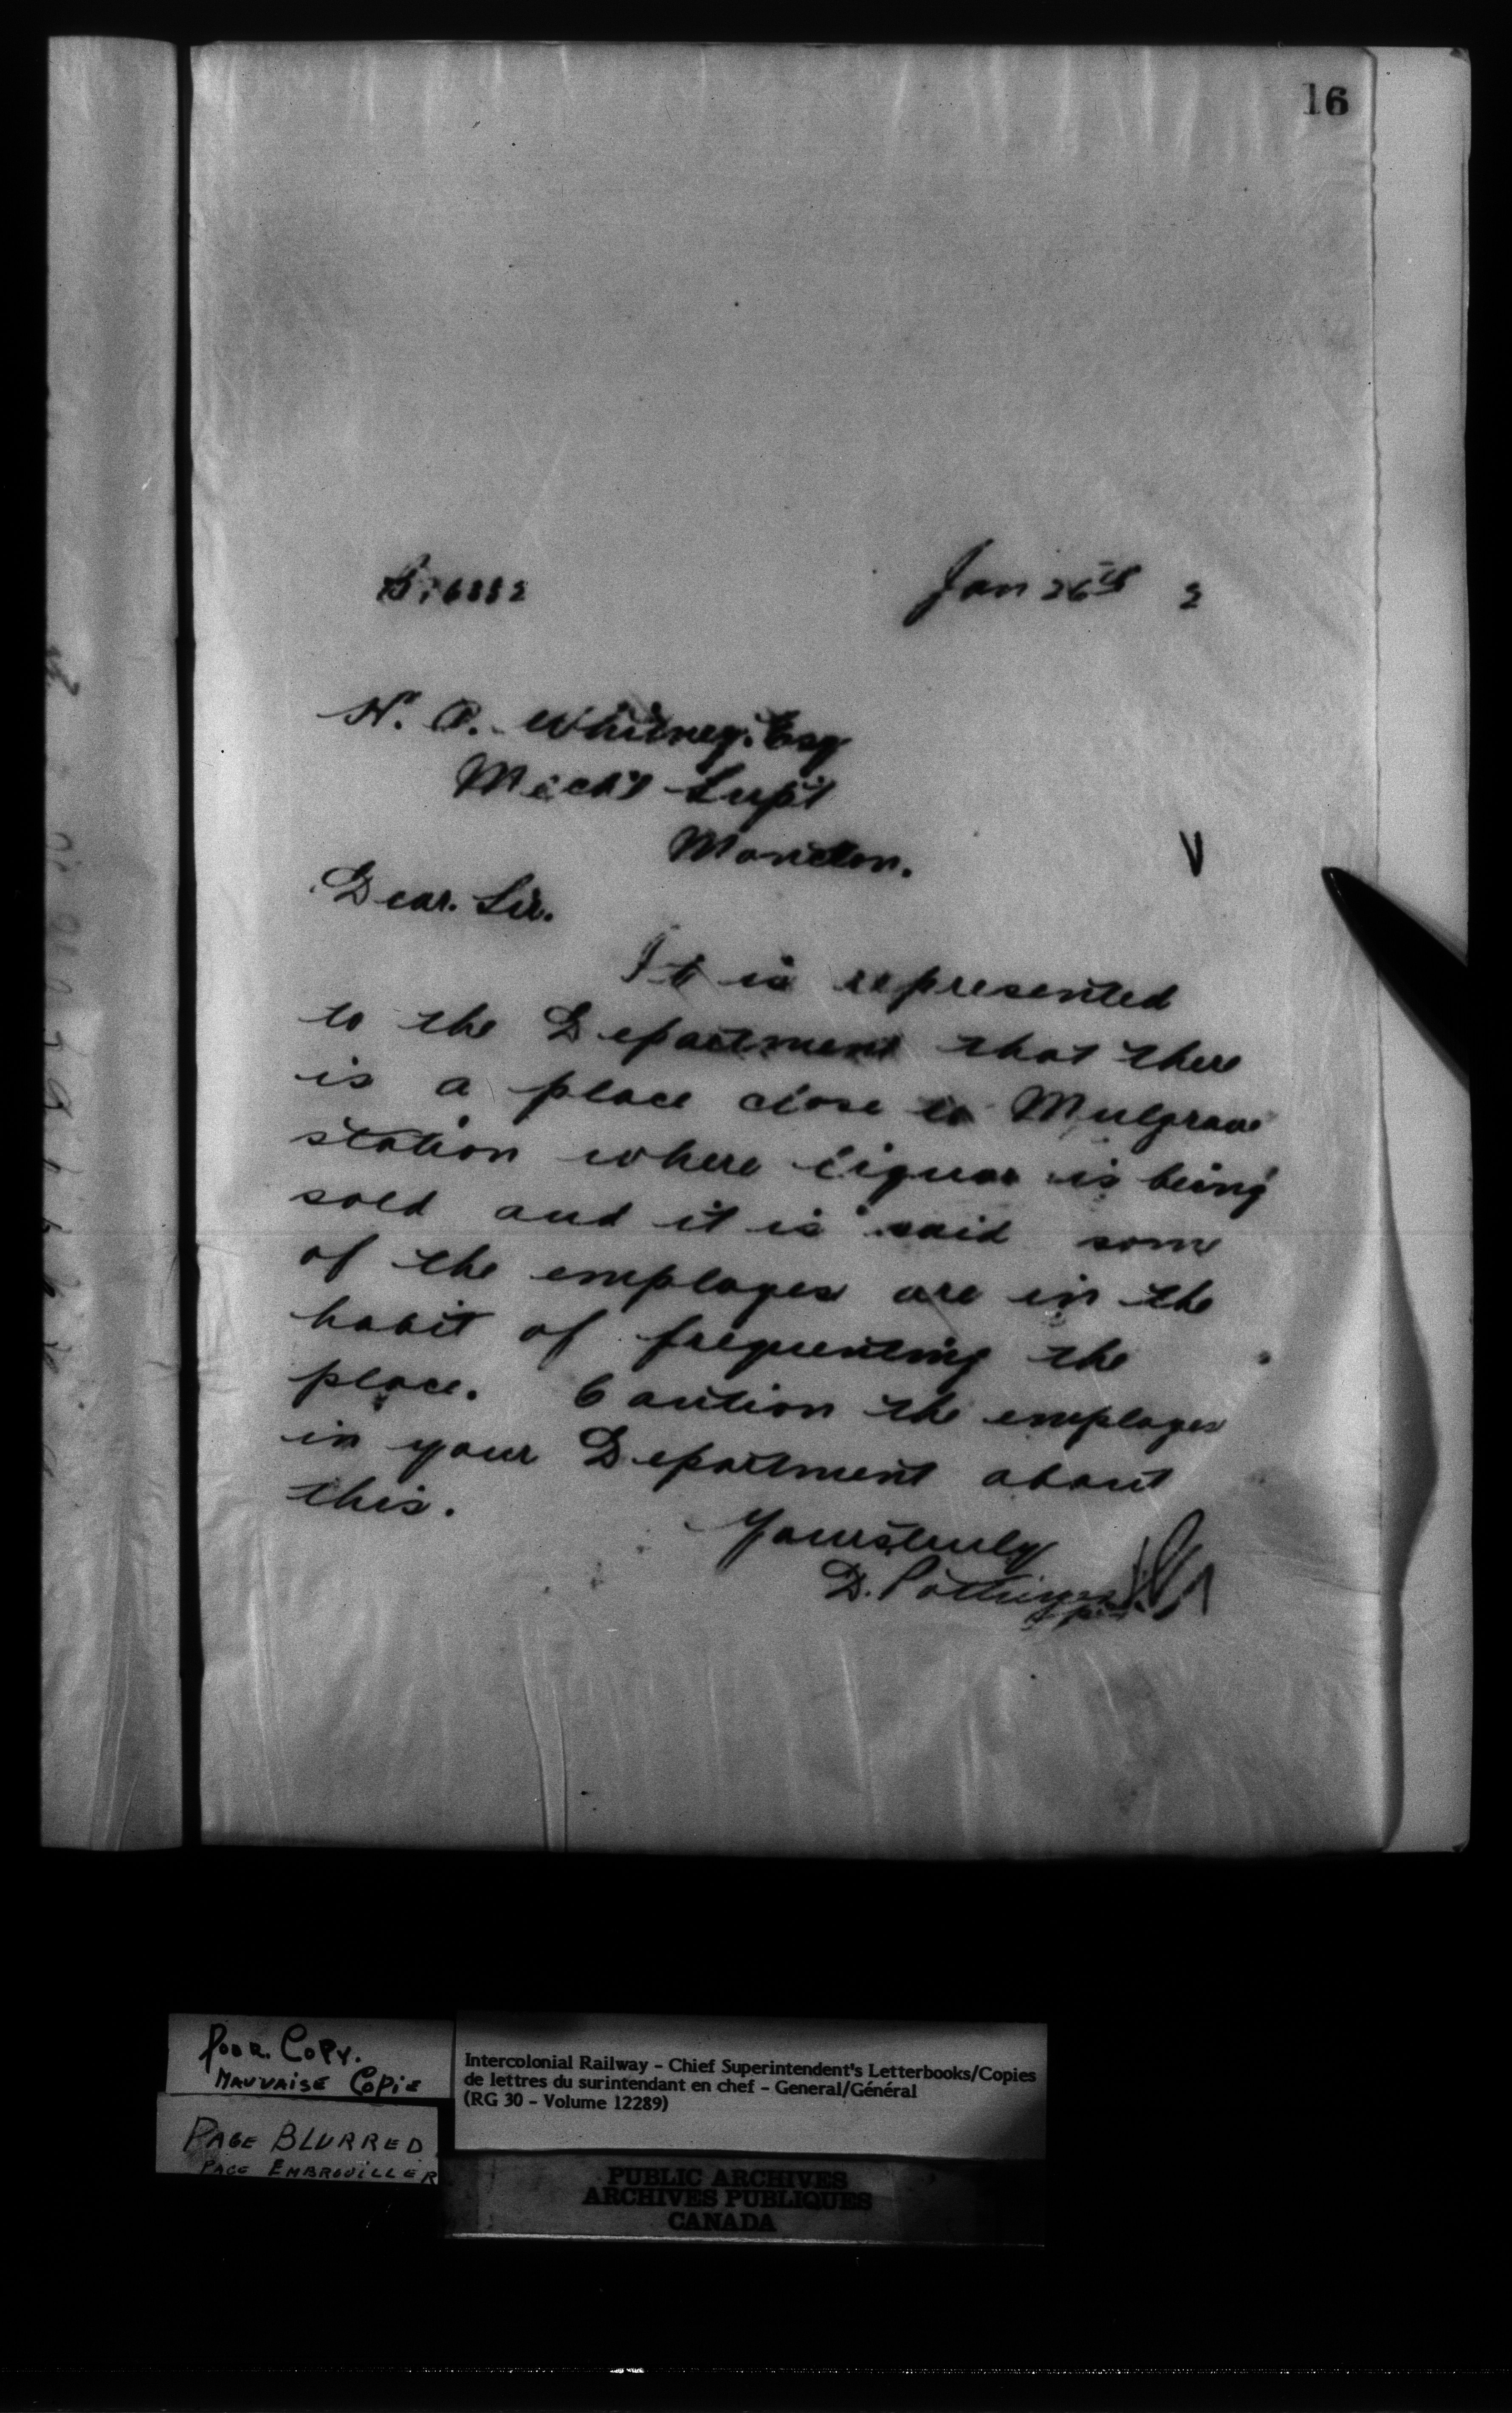 16
Jan 26th 2
H. A. Whitney. Esq
Mech'l Sup't
Moncton.
V
Dear. Sir.
It is represented
to the Department that there
is a place close to Mulgrave
station where liquor is being
sold and it is said some
of the employes are in the
habit of frequenting the
place. Caution the employes
in your Department about
this.
Yours truly
D. Pottinger
Poor Copy.
Mauvaise Copie
Page Blurred
Page Embrouiller
Intercolonial Railway - Chief Superintendent's Letterbooks/Copies
de lettres du surintendant en chef - General/Général
(RG 30 - Volume 12289)
PUBLIC ARCHIVES
ARCHIVES PUBLIQUES
CANADA